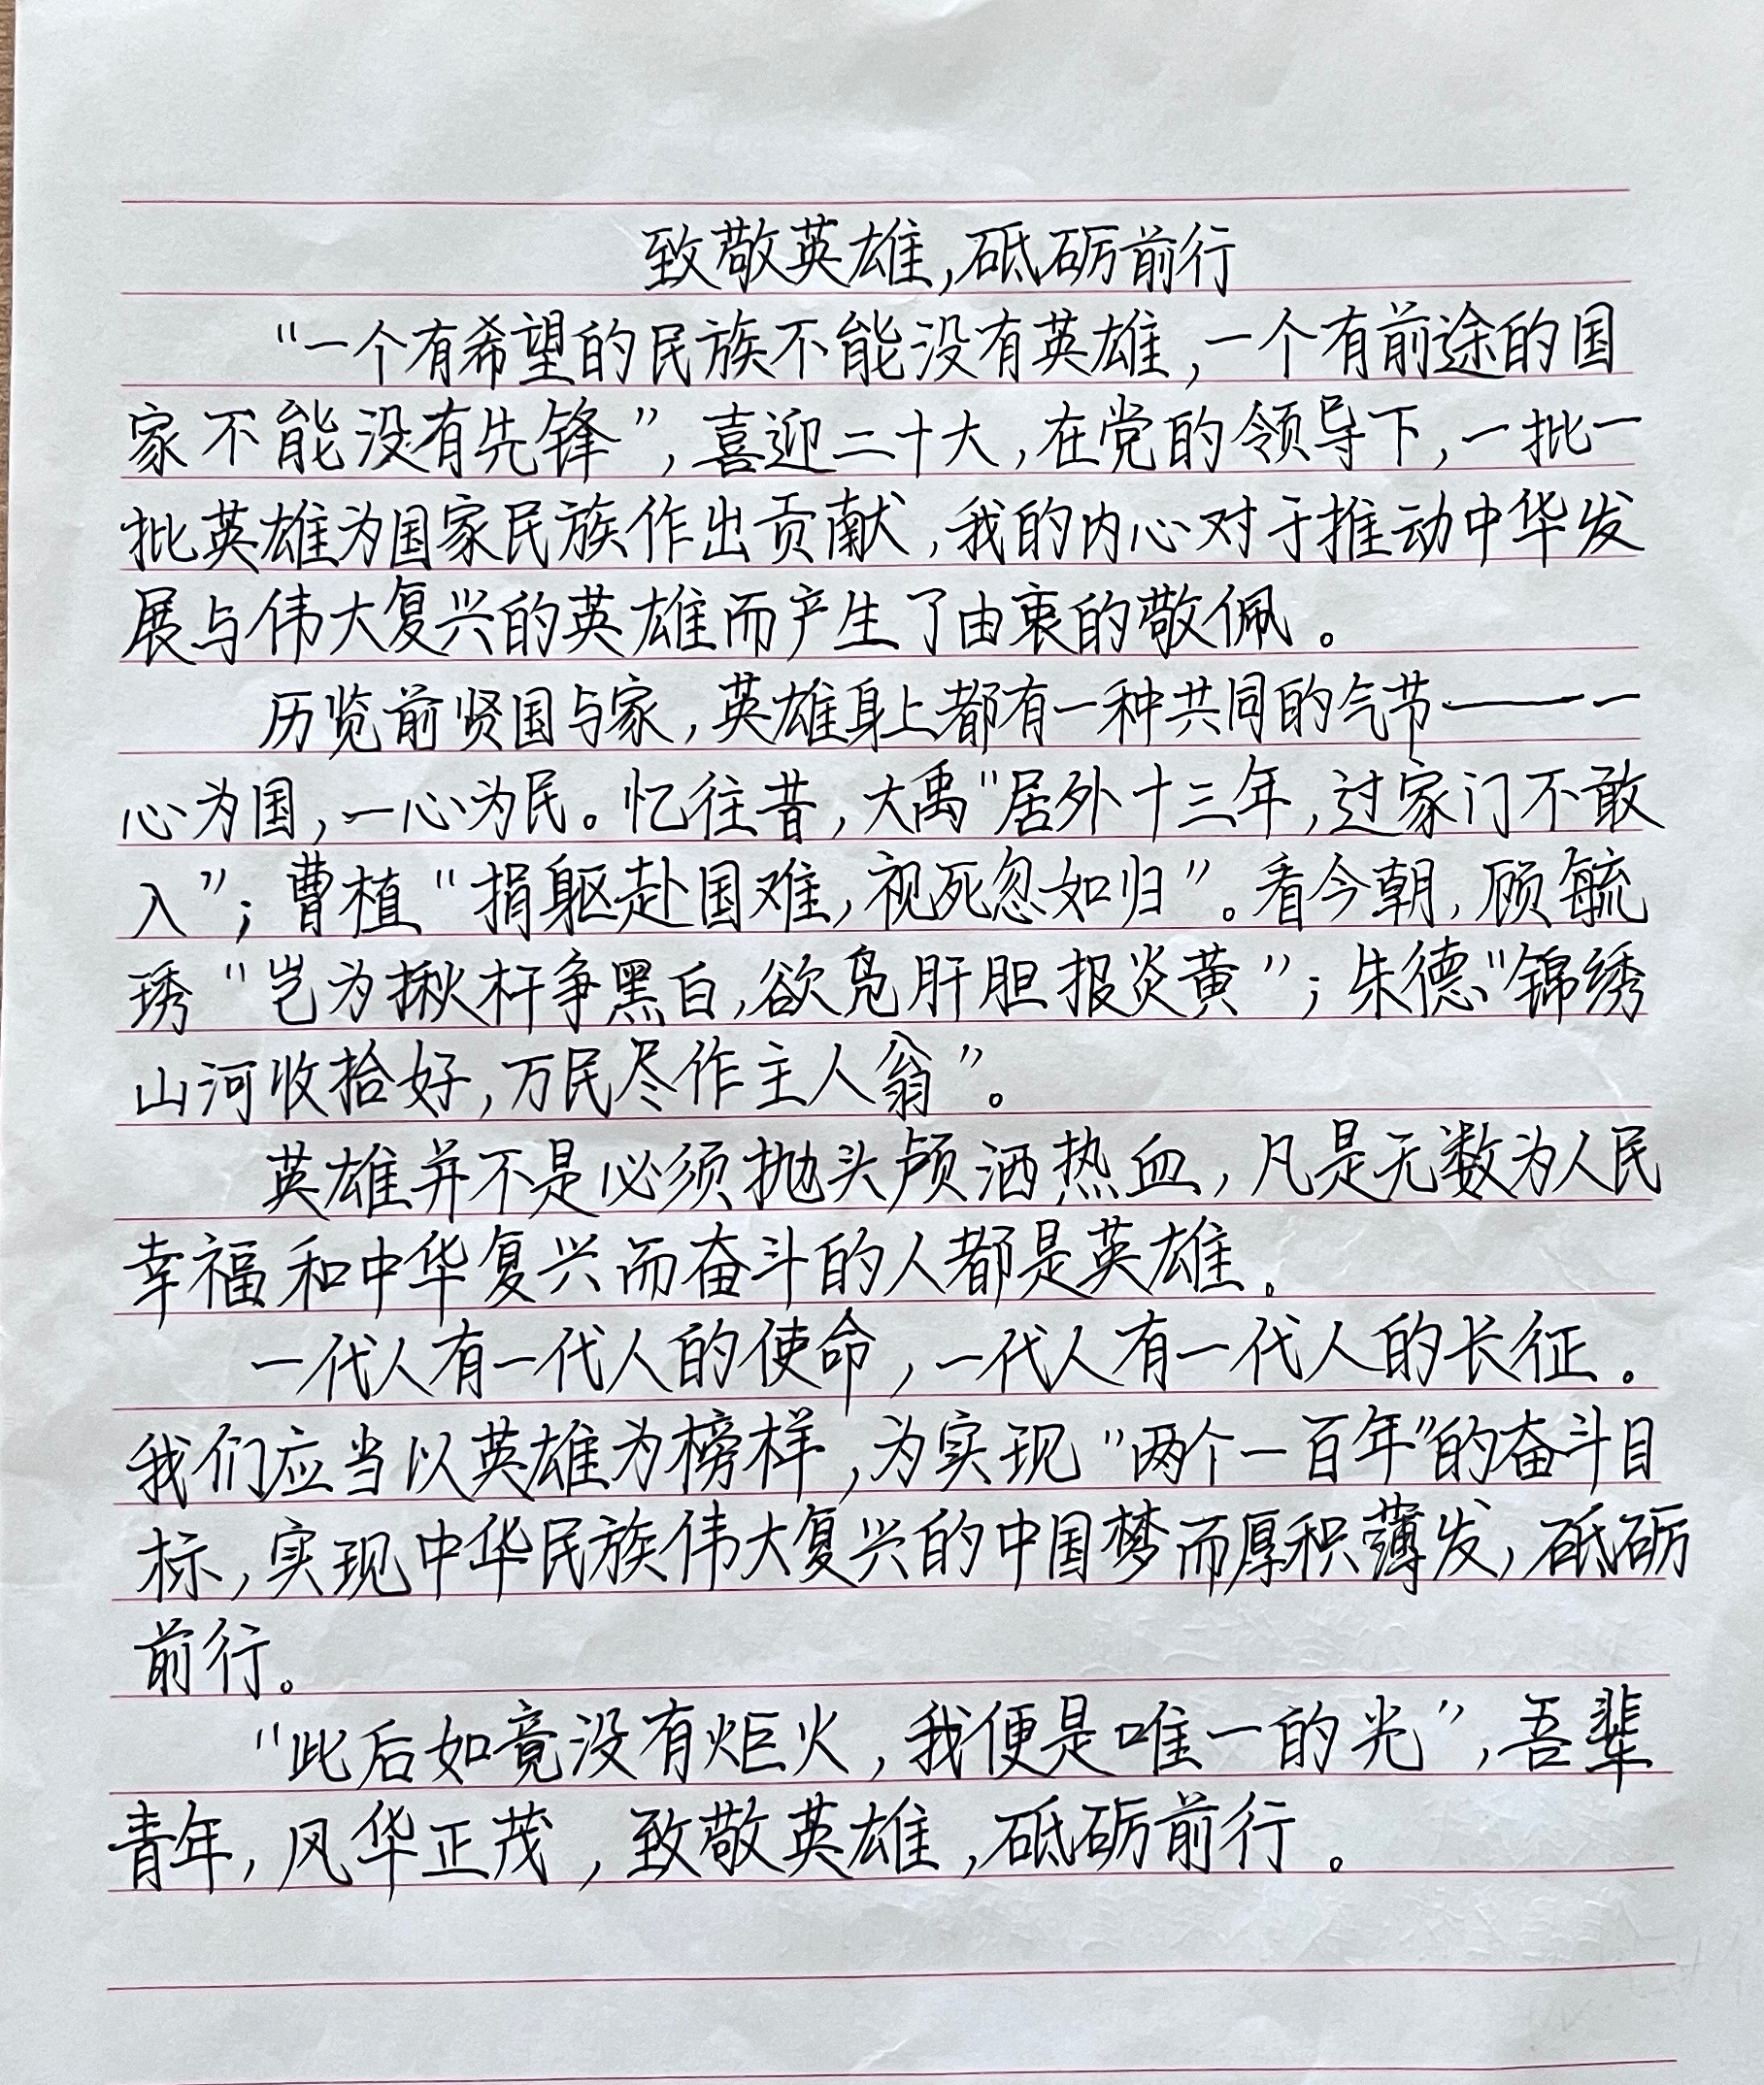 致敬英雄,砥砺前行
“一个有希望的民族不能没有英雄,一个有前途的国
家不能没有先锋”,喜迎二十大,在党的领导下,一批一
批英雄为国家民族作出贡献,我的内心对于推动中华发
展与伟大复兴的英雄而产生了由衷的敬佩。
历览前贤国与家,英雄身上都有一种共同的气节——一
心为国,一心为民。忆往昔,大禹“居外十三年,过家门不敢
入”;曹植“捐躯赴国难,视死忽如归”。看今朝,顾毓
琇“岂为揪枰争黑白,欲凫肝胆报炎黄”;朱德“锦绣
山河收拾好,万民尽作主人翁”。
英雄并不是必须抛头颅洒热血,凡是无数为人民
幸福和中华复兴而奋斗的人都是英雄。
一代人有一代人的使命,一代人有一代人的长征。
我们应当以英雄为榜样,为实现“两个一百年”的奋斗目
标,实现中华民族伟大复兴的中国梦而厚积薄发,砥砺
前行。
“此后如竟没有炬火,我便是唯一的光”,吾辈
青年,风华正茂,致敬英雄,砥砺前行。